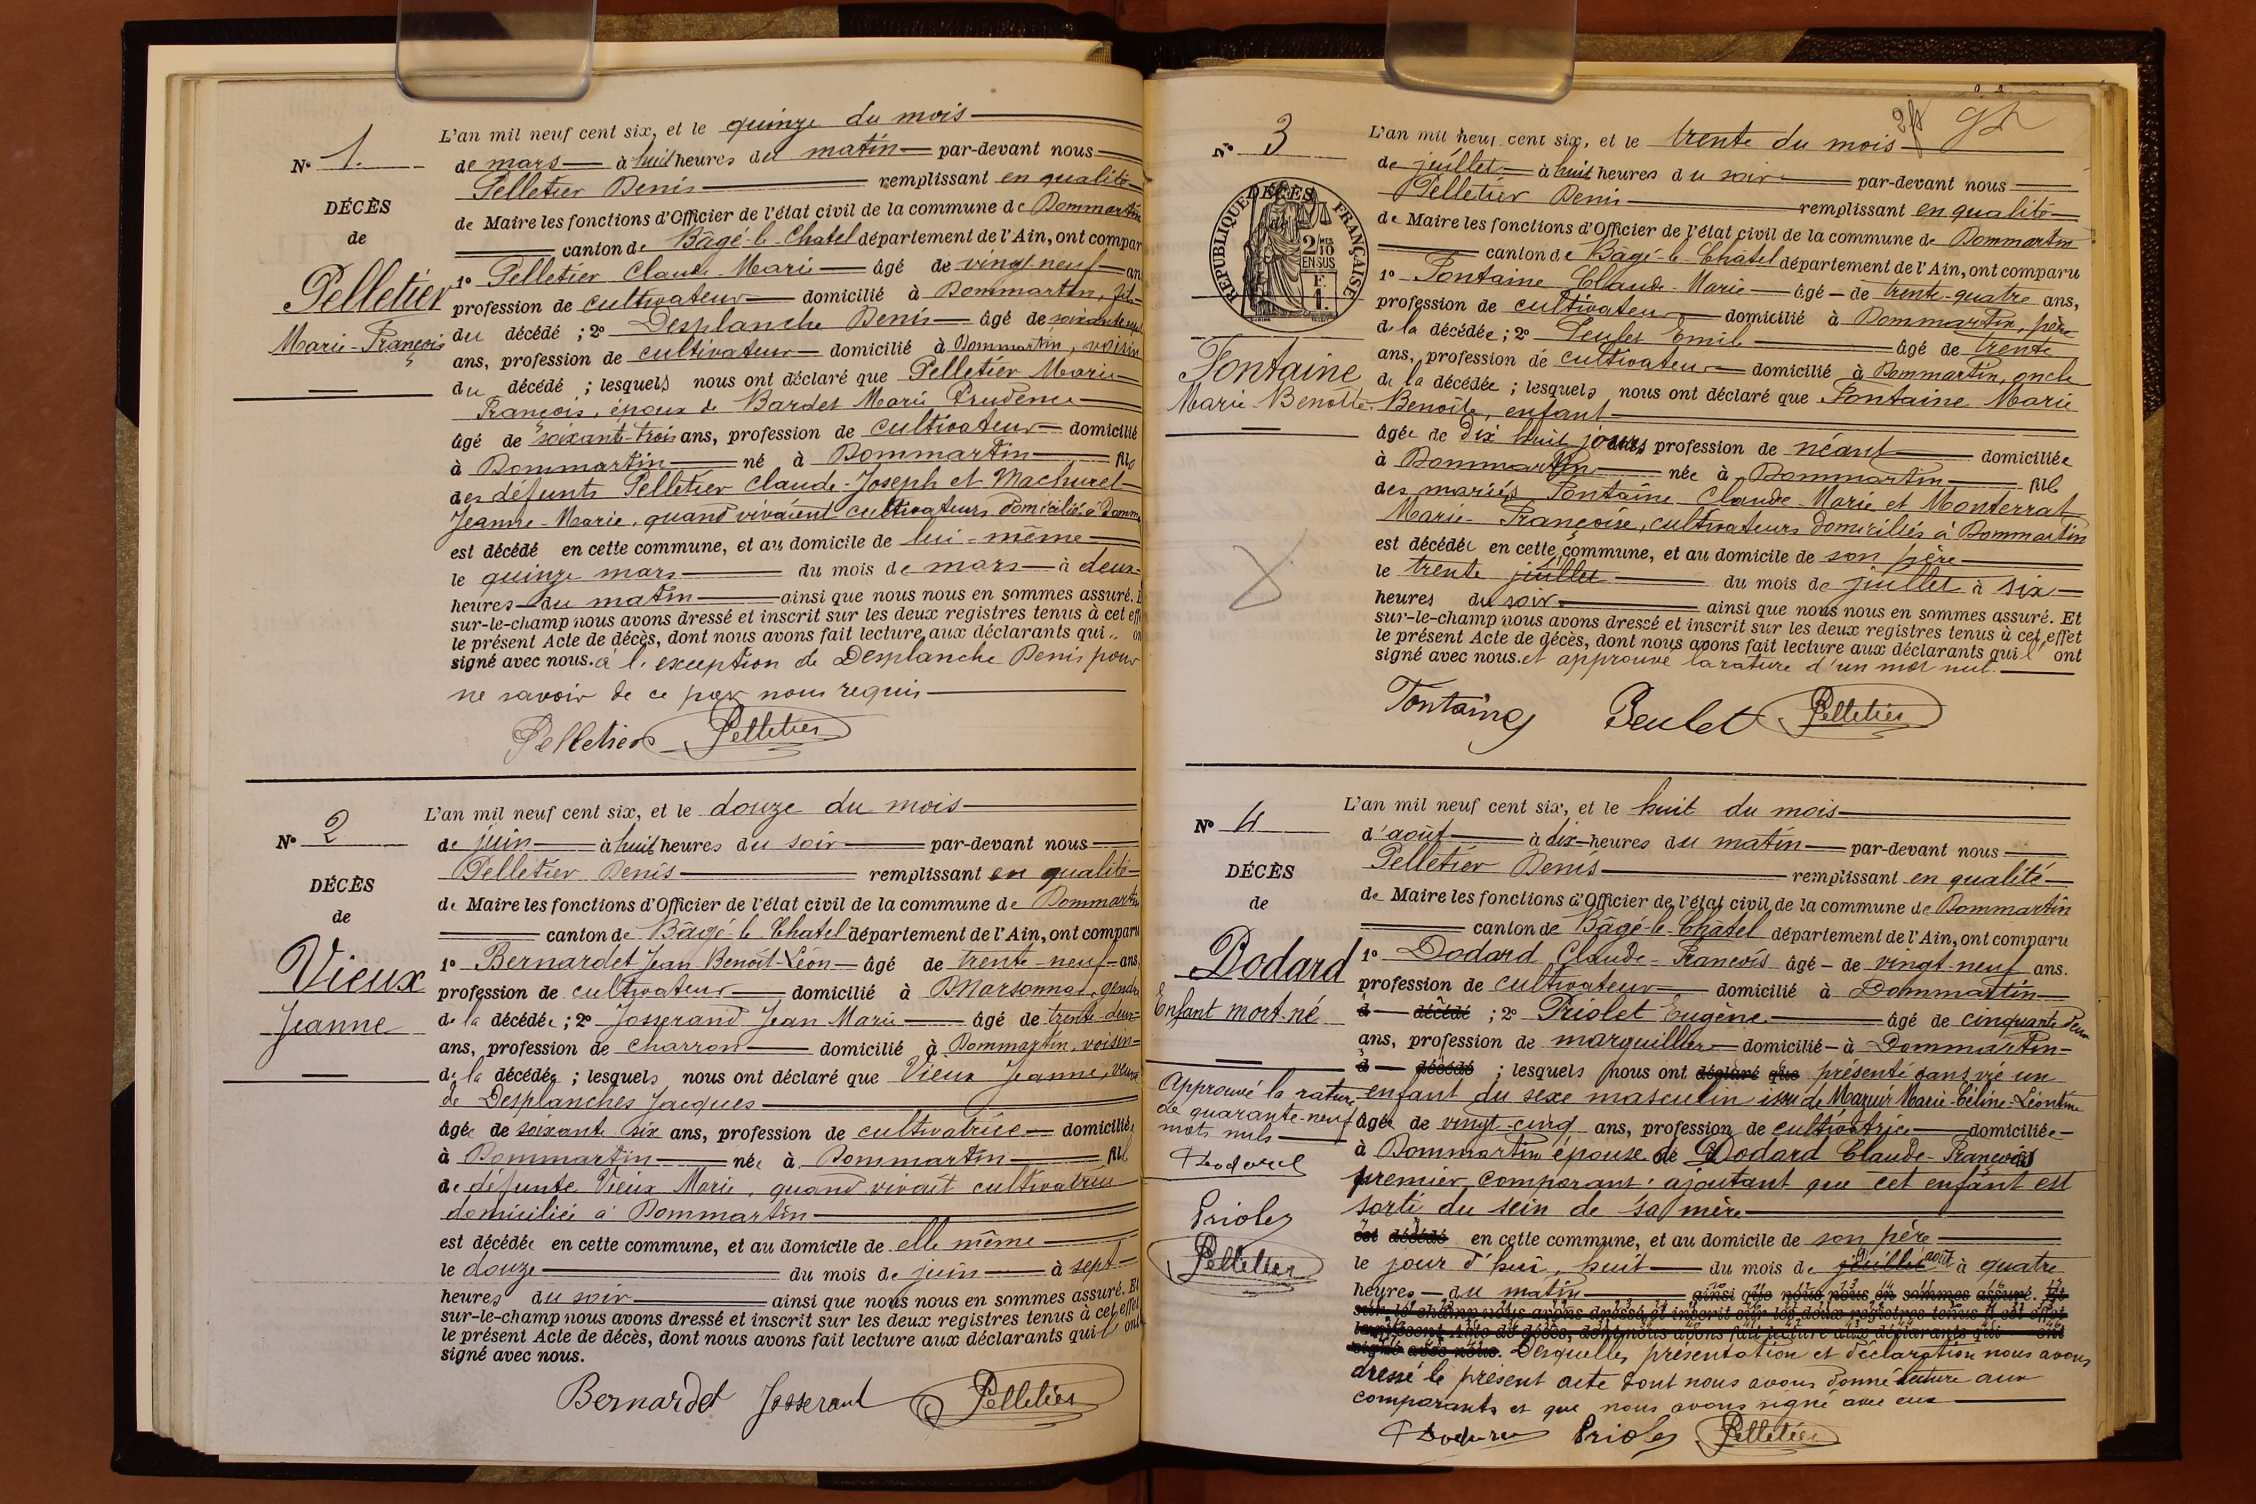 N° 1.
DÉCÈS
de
Pelletier
Marie-François
L'an mil neuf cent six, et le quinze du mois
de mars à huit heures du matin par-devant nous
Pelletier Denis remplissant en qualité
de Maire les fonctions d'Officier de l'état civil de la commune de Dommartin
canton de Bâgé-le-Chatel département de l'Ain, ont compar
1° Pelletier Claude-Marie âgé de vingt-neuf an
profession de cultivateur domicilié à Dommartin, fils
du décédé ; 2° Desplanche Denis âgé de
ans, profession de cultivateur domicilié à Dommartin, voisin
du décédé ; lesquels nous ont déclaré que Pelletier Marie
François, époux de Bardet Marie Prudence
âgé de soixante-trois ans, profession de cultivateur domicilié
à Dommartin né à Dommartin fils
des défunts Pelletier Claude-Joseph et Machurel
Jeanne-Marie, quand vivaient cultivateurs domiciliés à Domm
est décédé en cette commune, et au domicile de lui-même
le quinze mars du mois de mars à deux
heures du matin ainsi que nous nous en sommes assuré. E
sur-le-champ nous avons dressé et inscrit sur les deux registres tenus à cet eff
le présent Acte de décès, dont nous avons fait lecture aux déclarants qui on
signé avec nous. à l'exception de Desplanche Denis pour
ne savoir de ce par nous requis
Pelletier Pelletier
N° 2
DÉCÈS
de
Vieux
Jeanne
L'an mil neuf cent six, et le douze du mois
de juin à huit heures du soir par-devant nous
Pelletier Denis remplissant en qualité
de Maire les fonctions d'Officier de l'état civil de la commune de Dommartin
canton de Bâgé-le-Chatel département de l'Ain, ont comparu
1° Bernardet Jean Benoît-Léon âgé de trente-neuf ans
profession de cultivateur domicilié à Marsonnas, gendre
de la décédée ; 2° Josserand Jean Marie âgé de trente-deux
ans, profession de charron domicilié à Dommartin, voisin
de la décédée ; lesquels nous ont déclaré que Vieux Jeanne, veuve
de Desplanches Jacques
âgée de soixante six ans, profession de cultivatrice domiciliée
à Dommartin née à Dommartin fille
de défunte Vieux Marie, quand vivait cultivatrice
domiciliée à Dommartin
est décédée en cette commune, et au domicile de elle même
le douze du mois de juin à sept
heures du soir ainsi que nous nous en sommes assuré. Et
sur-le-champ nous avons dressé et inscrit sur les deux registres tenus à cet effet
le présent Acte de décès, dont nous avons fait lecture aux déclarants qui l'ont
signé avec nous.
Bernardet Josserand Pelletier
N° 3
RÉPUBLIQUE FRANÇAISE
2/10 EN SUS
F. 1
DÉCÈS
de
Fontaine
Marie-Benoîte
L'an mil neuf cent six, et le trente du mois
de juillet à huit heures du soir par-devant nous
Pelletier Denis remplissant en qualité
de Maire les fonctions d'Officier de l'état civil de la commune de Dommartin
canton de Bâgé-le-Châtel département de l'Ain, ont comparu
1° Fontaine Claude-Marie âgé de trente-quatre ans,
profession de cultivateur domicilié à Dommartin, père
de la décédée ; 2° Peulet Emile âgé de trente
ans, profession de cultivateur domicilié à Dommartin, oncle
de la décédée ; lesquels nous ont déclaré que Fontaine Marie
Benoîte, enfant
âgée de dix huit jours profession de néant domiciliée
à Dommartin née à Dommartin fille
des mariés Fontaine Claude-Marie et Monterrat
Marie-Françoise, cultivateurs domiciliés à Dommartin
est décédée en cette commune, et au domicile de son père
le trente juillet du mois de juillet à six
heures du soir ainsi que nous nous en sommes assuré. Et
sur-le-champ nous avons dressé et inscrit sur les deux registres tenus à cet effet
le présent Acte de décès, dont nous avons fait lecture aux déclarants qui l'ont
signé avec nous. et approuvé la rature d'un mot nul.
Fontaine Peulet Pelletier
N° 4
DÉCÈS
de
Dodard
Enfant mort-né
Approuvé la rature
de quarante-neuf
mots nuls
Dodard
Priolet
Pelletier
L'an mil neuf cent six, et le huit du mois
d'août à dix heures du matin par-devant nous
Pelletier Denis remplissant en qualité
de Maire les fonctions d'Officier de l'état civil de la commune de Dommartin
canton de Bâgé-le-Châtel département de l'Ain, ont comparu
1° Dodard Claude-François âgé de vingt-neuf ans.
profession de cultivateur domicilié à Dommartin
d décédé ; 2° Priolet Eugène âgé de cinquante deux
ans, profession de marguillier domicilié à Dommartin
d décédé ; lesquels nous ont déclaré que présenté sans vie un
enfant du sexe masculin issu de Mazuir Marie-Céline-Léontine
âgée de vingt-cinq ans, profession de cultivatrice domiciliée
à Dommartin épouse de Dodard Claude-François
premier comparant ; ajoutant que cet enfant est
sorti du sein de sa mère
est décédé en cette commune, et au domicile de son père
le jour d'hui, huit du mois de juillet août à quatre
heures du matin ainsi que nous nous en sommes assuré. Et
sur-le-champ nous avons dressé et inscrit sur les deux registres tenus à cet effet
le présent Acte de décès, dont nous avons fait lecture aux déclarants qui ont
signé avec nous. Desquelles présentation et déclaration nous avons
dressé le présent acte dont nous avons donné lecture aux
comparants et que nous avons signé avec eux
Dodard Priolet Pelletier